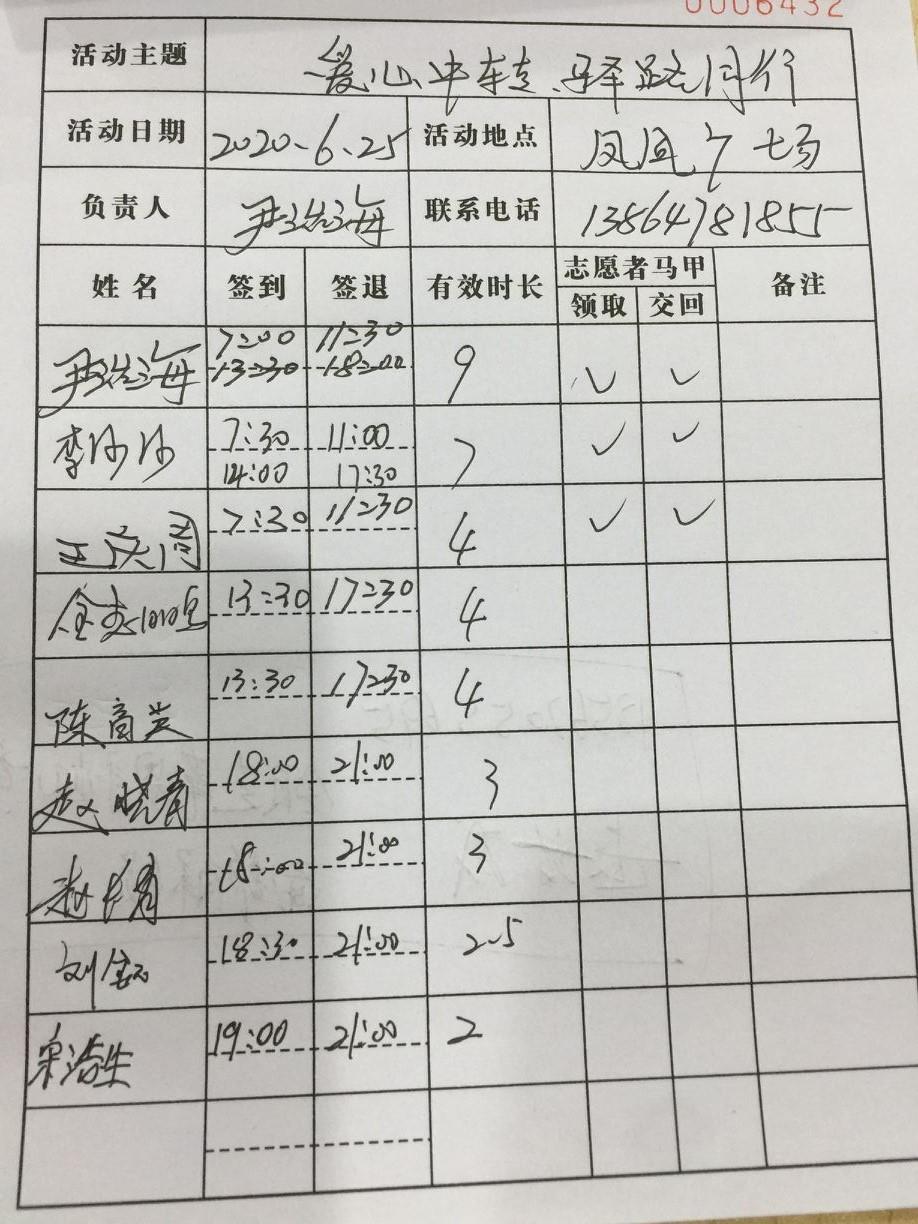 0006432
活动主题 爱心中转、驿路同行
活动日期 2020.6.25 活动地点 凤凰广场
负责人 尹浩海 联系电话 13864781855
姓名 签到 签退 有效时长 志愿者马甲 备注
领取 交回
尹浩海 7:00 11:30 9 ✓ ✓
13:30 18:00
李沙沙 7:30 11:00 7 ✓ ✓
14:00 17:30
王庆周 7:30 11:30 4 ✓ ✓
13:30 17:30 4
陈高芝 13:30 17:30 4
赵晓青 18:00 21:00 3
赵长有 18:00 21:00 3
刘 18:30 21:00 2.5
宋浩生 19:00 21:00 2